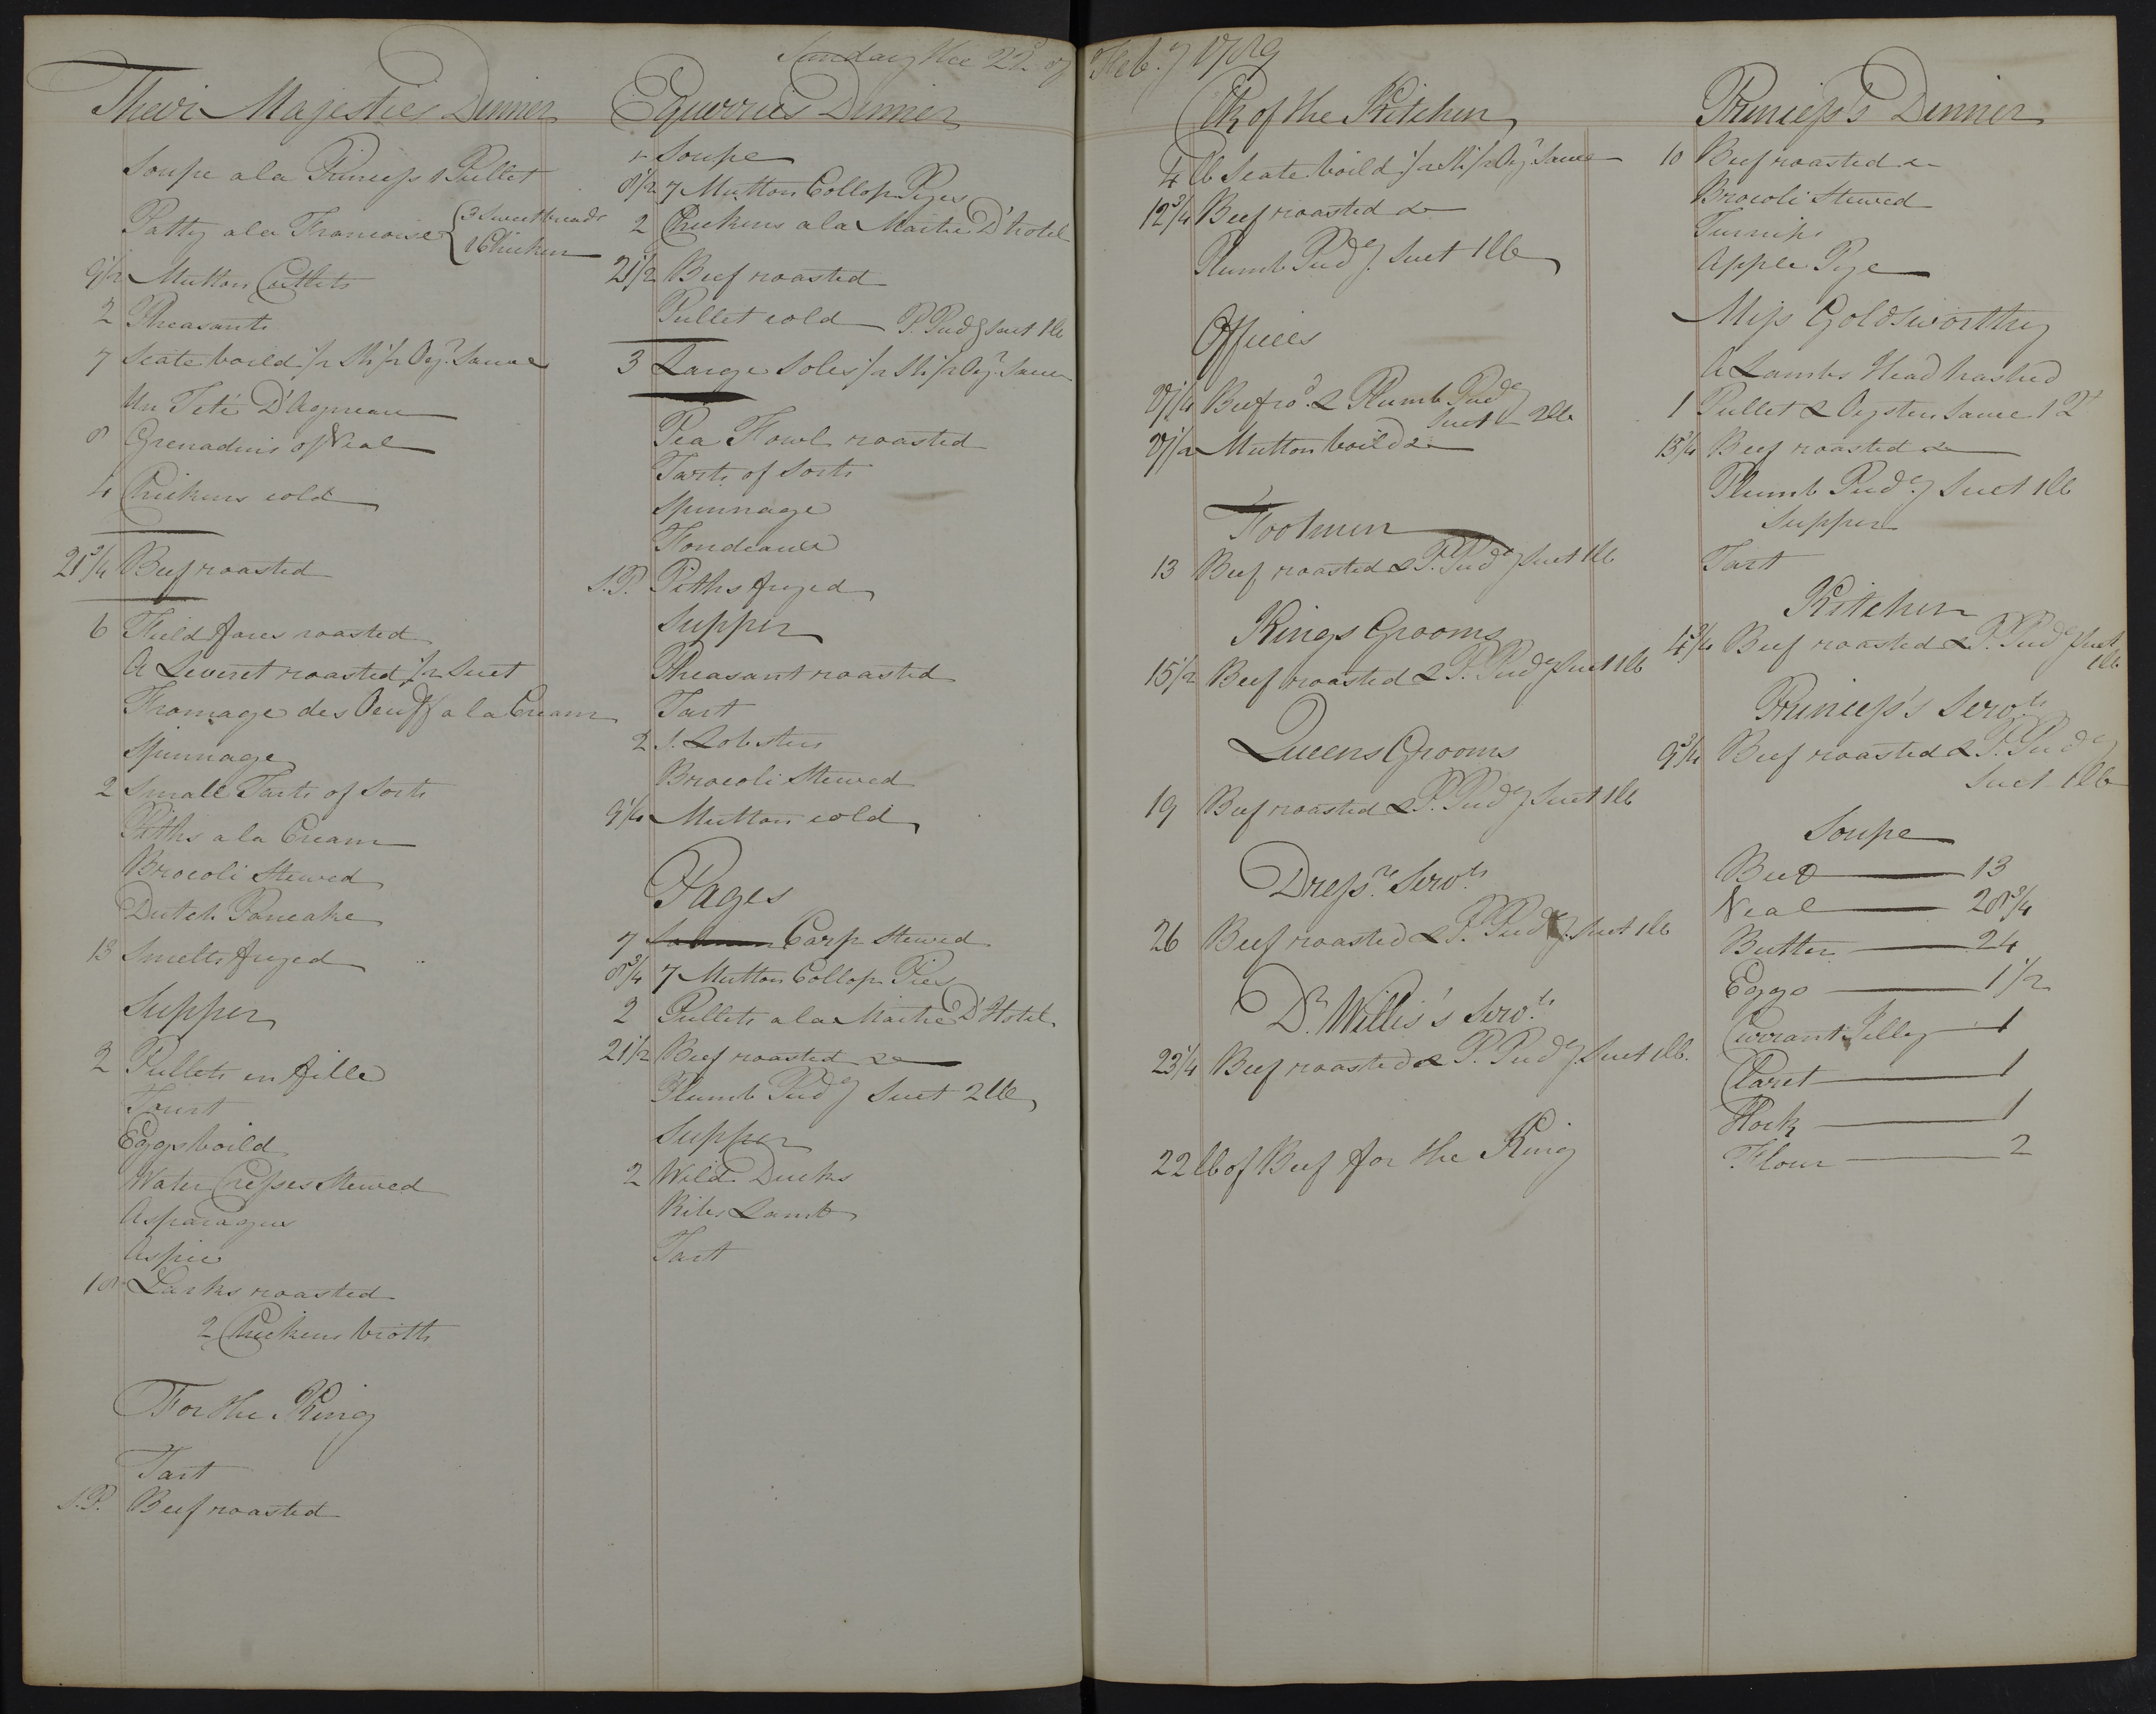 Sunday the 22d of Feby 1789
Their Majesties Dinner
Soupe a la Princess 1 Pullet
Patty a la Francoise { 3 Sweetbreads
1 Chicken
9 1/2 Mutton Cutlets
2 Pheasants
7 Scate boild
Un Teté D'Agneau
8 Grenadins of Veal
4 Chickens cold
21 3/4 Beef roasted
6 Field fares roasted
A Leveret roasted 1/2 Suet
Fromage des Oeuff a la Cream
Spinnage
2 Small Tarts of Sorts
Piths a la Cream
Brocoli Stewed
Dutch Pancake
13 Smelts fryed
Supper
2 Pullets en fille
Tourt
Eggs boild
Water Cresses Stewed
Asparagus
Aspic
18 Larks roasted
2 Chickens broth
For the King
Tart
S.P. Beef roasted
Equerries Dinner
Soupe
8 1/2 7 Mutton Collop Pyes
2 Chickens a la Maitre D'hotel
21 1/2 Beef roasted
Pullet cold P. Pudg Suet 1 lb
3 Large Soles
Pea Fowl roasted
Tarts of Sorts
Spinnage
Fondeaux
S.P. Piths fryed
Supper
Pheasant roasted
Tart
2 S. Lobsters
Brocoli Stewed
9 1/4 Mutton cold
Pages
7 Salmon Carp Stewed
8 3/4 7 Mutton Collop Pies
2 Pullets a la Maitre D'Hotel
21 1/2 Beef roasted &
Plumb Pudg Suet 2 lb
Supper
2 Wild Ducks
Ribs Lamb
Tart
Clk of the Kitchen
4 lb Scate boild
12 3/4 Beef roasted &
Plumb Pudg Suet 1 lb
Offices
Beef ro.d & Plumb Pudg
Suet 2 lb
Mutton boild &
Footmen
13 Beef roasted & P. Pudg Suet 1 lb
Kings Grooms
15 1/2 Beef roasted & P. Pudg Suet 1 lb
Queens Grooms
19 Beef roasted & P. Pudg Suet 1 lb
Dressrs Servts
26 Beef roasted & P. Pudg Suet 1 lb
Dr Willis's Servts
23 1/4 Beef roasted & P. Pudg Suet 1 lb.
22 lb of Beef for the King
Princess's Dinner
10 Beef roasted &
Brocoli Stewed
Turnips
Apple Pye
Miss Goldsworthy
A Lambs Head hashed
1 Pullet & Oyster Sauce
13 3/4 Beef roasted &
Plumb Pudg Suet 1 lb
Supper
Tart
Kitchen
Beef roasted & P. Pudg Suet
1 lb
Princess's Servts
9 3/4 Beef roasted & P. Pudg
Suet 1 lb
Soupe
Beef 13
Veal 28 3/4
Butter 24
Eggs 1 1/2
Currant Jelley 1
Claret 1
Hock 1
Flour 2